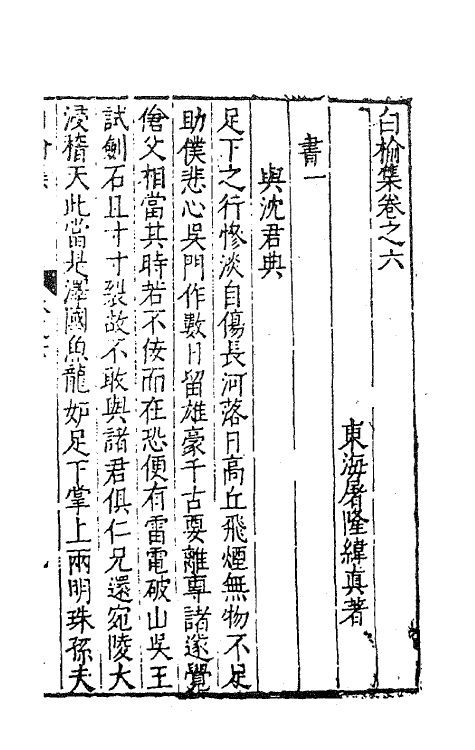 白榆集卷之六
東海屠隆緯真著
書一
與沈君典
足下之行慘淡自傷長河落日高丘飛煙無物不足
助僕悲心吳門作數日留雄豪千古要離專諸遂覺
傖父相當其時若不佞而在恐便有雷電破山吳王
試劍石且寸寸裂故不敢與諸君俱仁兄還宛陵大
浸稽天此當是澤國魚龍妒足下掌上兩明珠孫夫